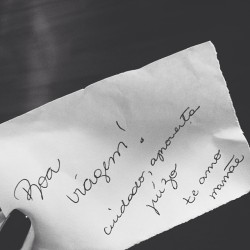 Boa
viagem!
cuidado, aproveita
juízo
te amo
mamãe